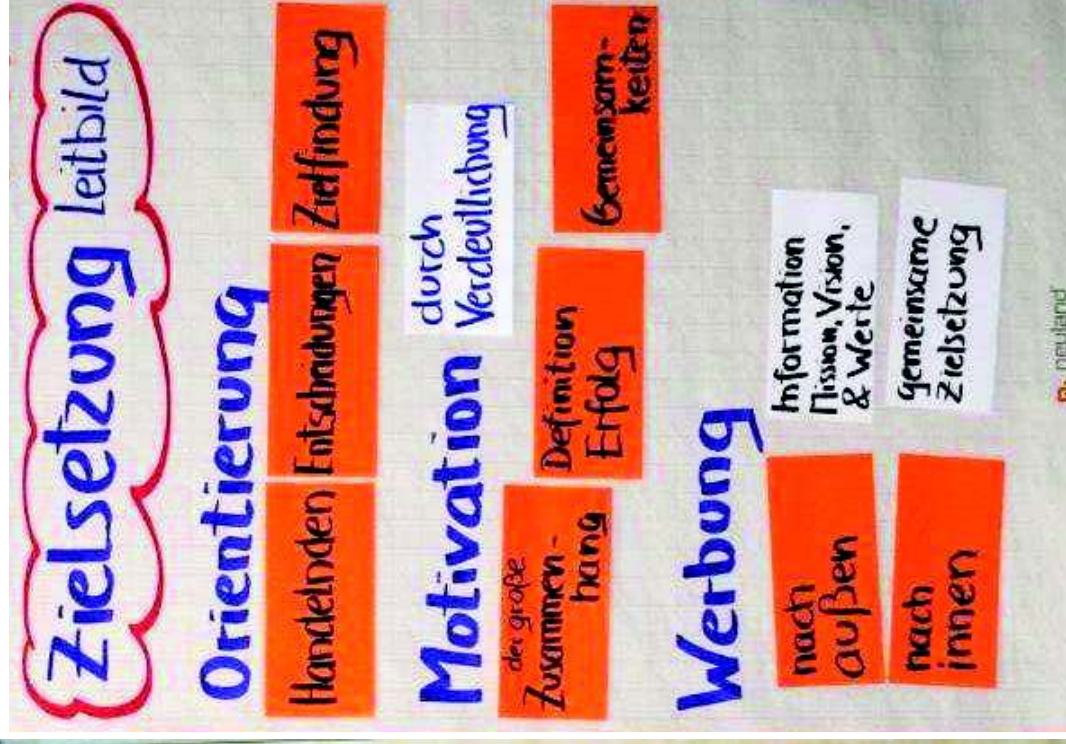 Zielsetzung Leitbild
Orientierung
Handelnden
Entscheidungen
Zielfindung
Motivation
durch
Verdeutlichung
der große
Zusammen-
hang
Definition
Erfolg
Gemeinsam-
keiten
Werbung
nach
außen
Information
Mission, Vision,
& Werte
nach
innen
Gemeinsame
Zielsetzung
neuland